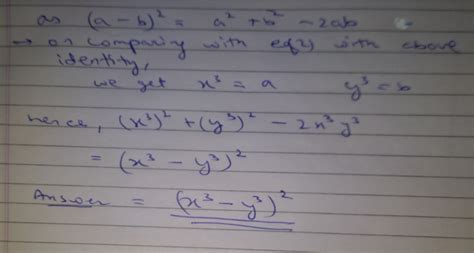 as (a - b)² = a² + b² - 2ab
→ on comparing with eq(2) with above
identity,
we get x³ = a y³ = b
hence, (x³)² + (y³)² - 2x³y³
= (x³ - y³)²
Answer = (x³ - y³)²